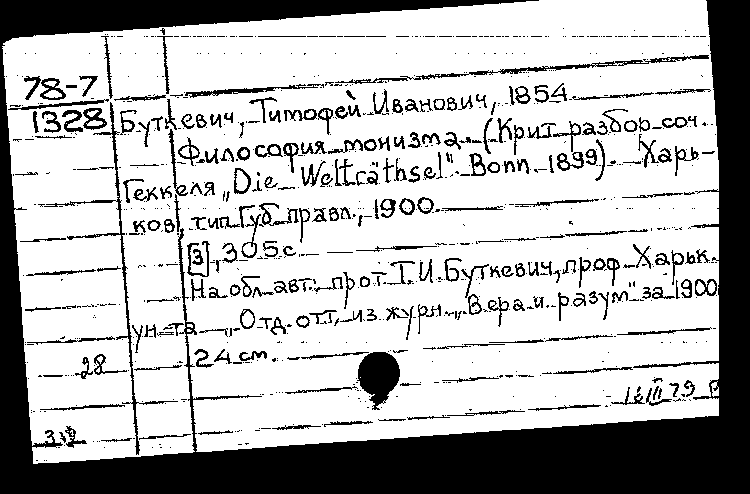 78-7
1328
Буткевич, Тимофей Иванович, 1854.
Философия монизма. (Крит. разбор соч.
Геккеля „Die Welträthsel". Bonn. 1899). Харь-
ков, тип. Губ. правл., 1900.
[3], 305 с.
На обл. авт.: прот. Т. И. Буткевич, проф. Харьк.
ун-та „Отд. отт. из журн. „Вера и разум" за 1900
24 см.
28
16 III 79